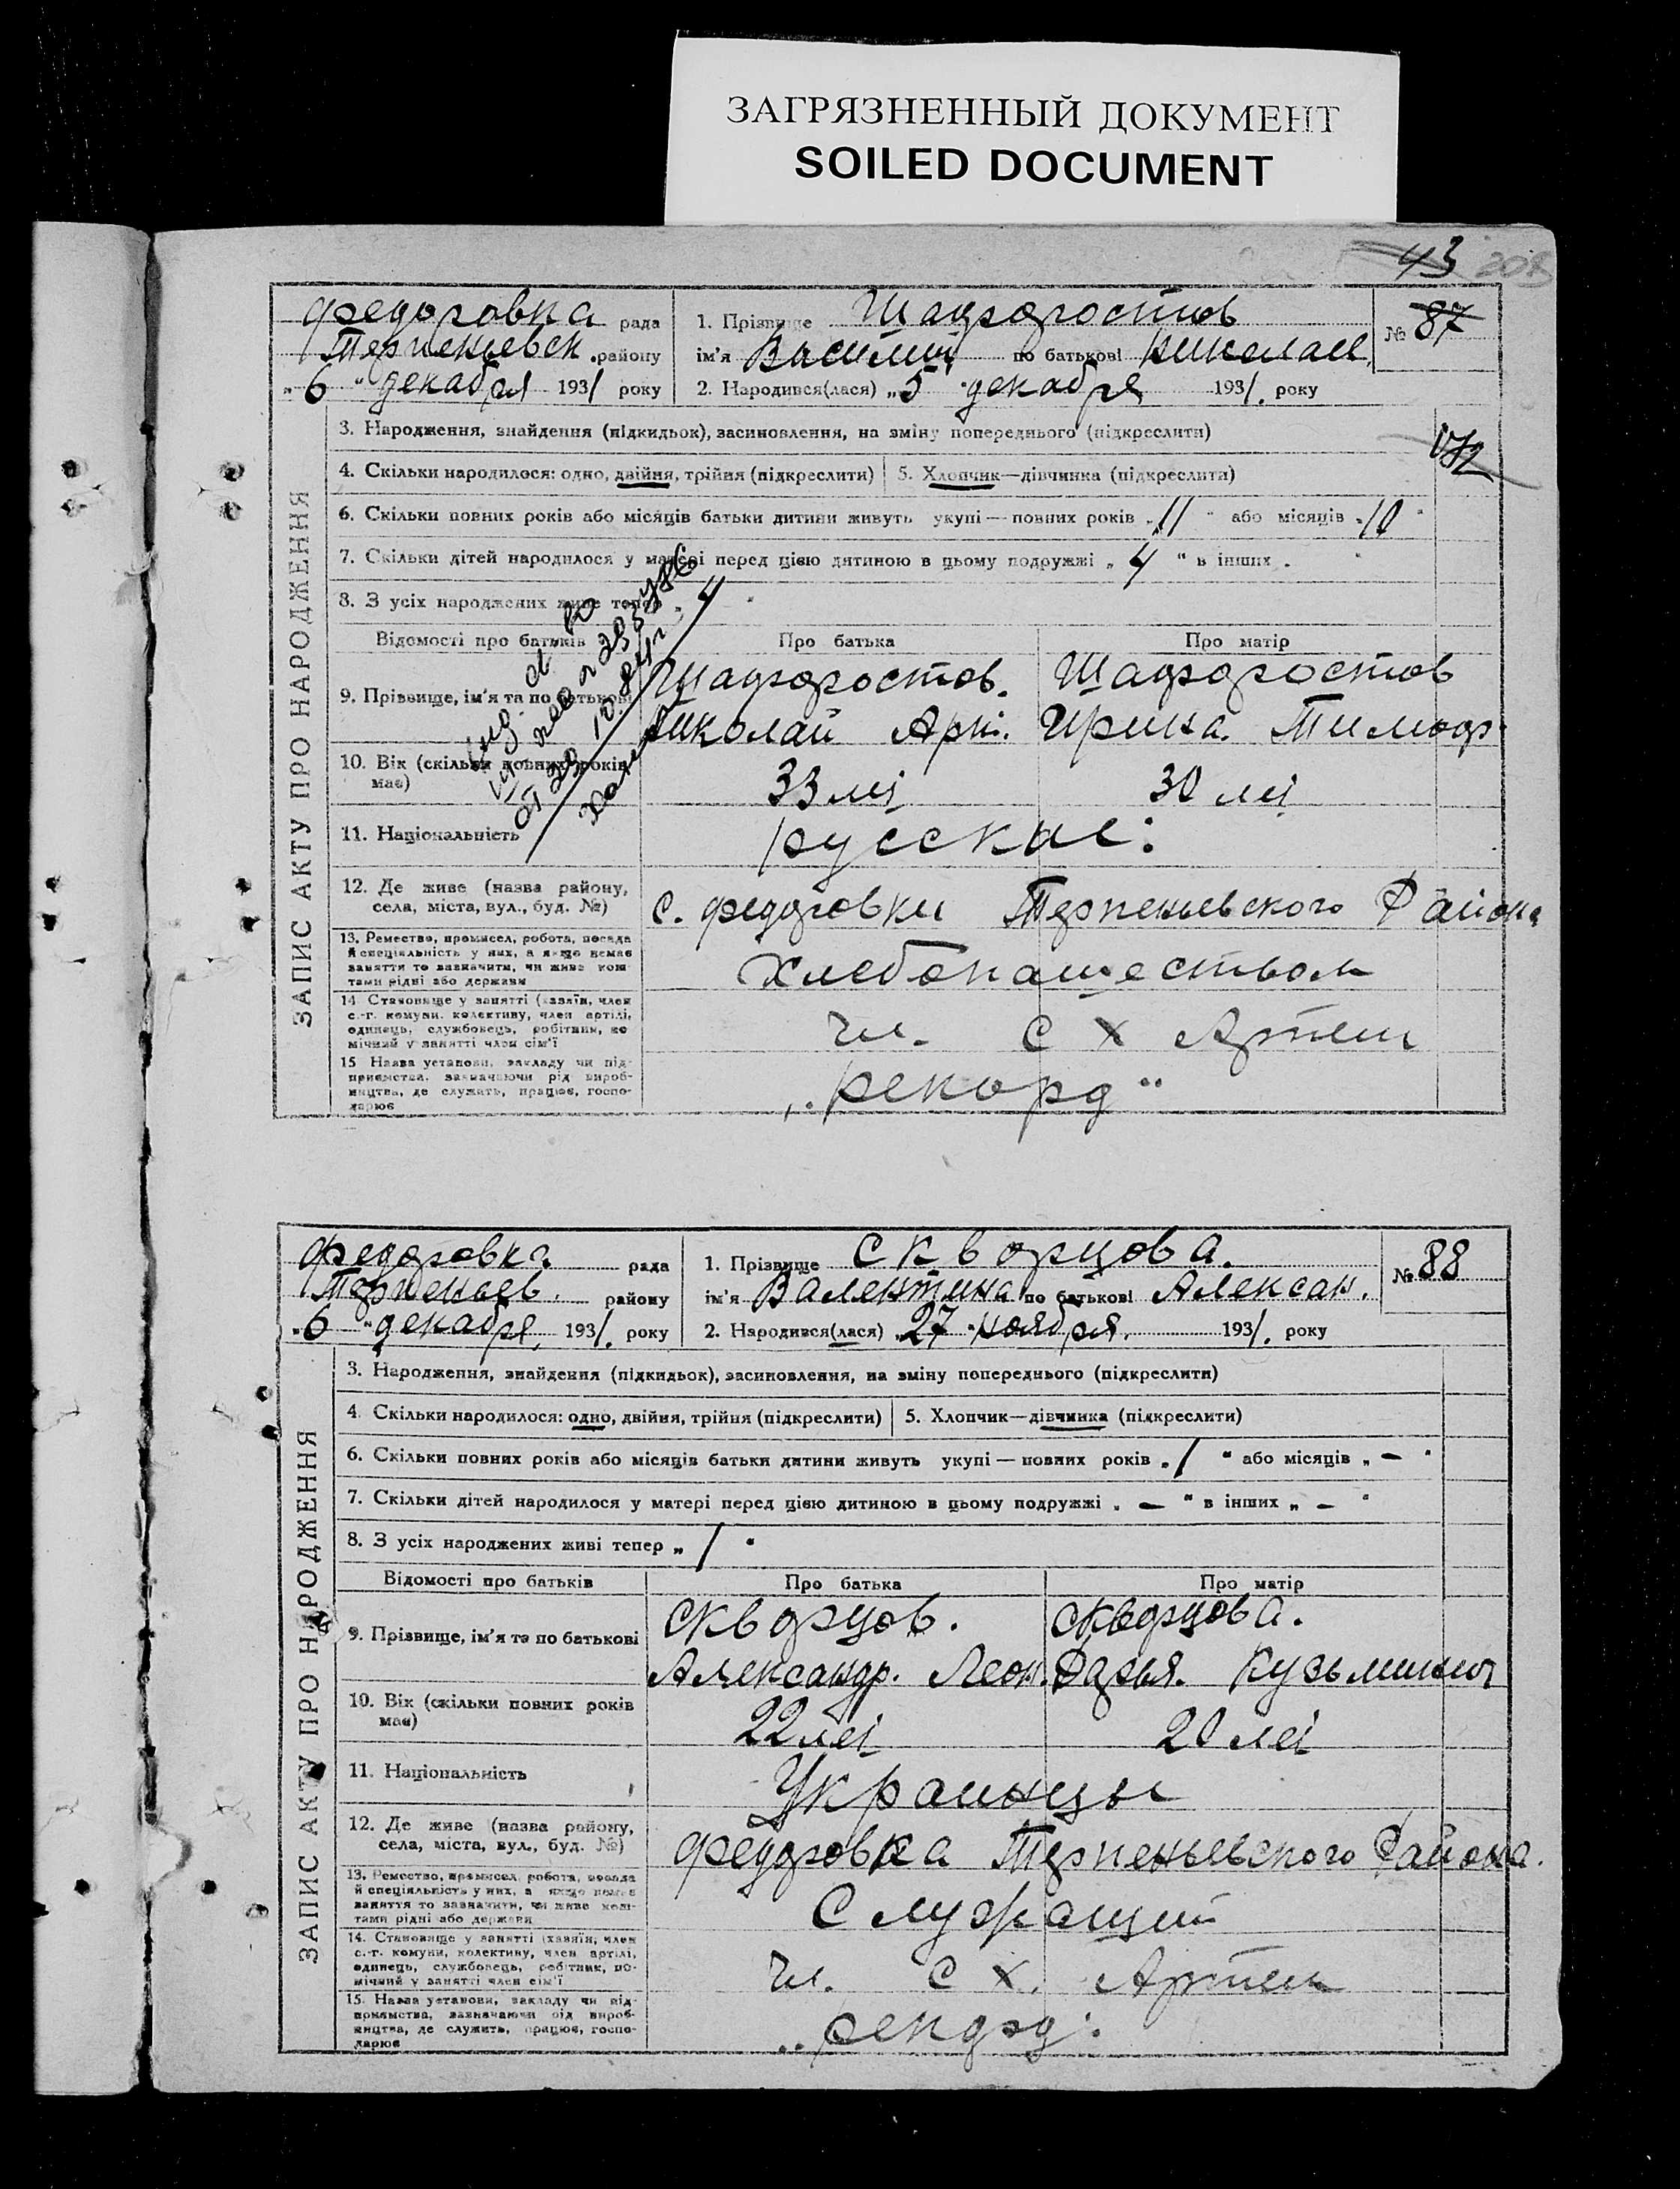 ЗАГРЯЗНЕННЫЙ ДОКУМЕНТ
SOILED DOCUMENT
43 208
Федоровка рада
Терпеньевск. району
„6“ декабря 1931 року
1. Прізвище Шафоростов
ім'я Василий по батькові Николаев.
2. Народився(лася) „5“ декабря 1931. року
№ 87
ЗАПИС АКТУ ПРО НАРОДЖЕННЯ
3. Народження, знайдення (підкидьок), засиновлення, на зміну попереднього (підкреслити)
4. Скільки народилося: одно, двійня, трійня (підкреслити)
5. Хлопчик—дівчинка (підкреслити)
6. Скільки повних років або місяців батьки дитини живуть укупі — повних років „11“ або місяців „10“
7. Скільки дітей народилося у матері перед цією дитиною в цьому подружжі „4“ в інших
8. З усіх народжених живе тепер „4“
Відомості про батьків
Про батька
Про матір
9. Прізвище, ім'я та по батькові
Шафоростов.
Николай Арк.
Шафоростов
Ирина. Тимоф.
10. Вік (скільки повних років має)
33 лет
30 лет
11. Національність
русские:
12. Де живе (назва району,
села, міста, вул., буд. №)
с. Федоровки Терпеньевского Района
13. Ремество, промисел, робота, посада
й спеціяльність у них, а якщо немає
заняття то зазначити, чи живе кош-
тами рідні або держави
Хлебопашеством
14 Становище у занятті (хазяїн, член
с.-г. комуни, колективу, член артілі,
одинець, службовець, робітник, по
мічний у занятті член сім'ї
Чл. С Х Артели
15 Назва установи, закладу чи під-
приємства, зазначаючи рід вироб-
ництва, де служить, працює, госпо-
дарює
„рекорд“
Федоровка рада
Терпеньев. району
„6“ декабря, 1931. року
1. Прізвище Скворцова.
ім'я Валентина по батькові Алексан.
2. Народився(лася) „27“ ноября. 1931. року
№ 88
ЗАПИС АКТУ ПРО НАРОДЖЕННЯ
3. Народження, знайдення (підкидьок), засиновлення, на зміну попереднього (підкреслити)
4. Скільки народилося: одно, двійня, трійня (підкреслити)
5. Хлопчик—дівчинка (підкреслити)
6. Скільки повних років або місяців батьки дитини живуть укупі — повних років „1“ або місяців „–“
7. Скільки дітей народилося у матері перед цією дитиною в цьому подружжі „–“ в інших „–“
8. З усіх народжених живі тепер „1“
Відомості про батьків
Про батька
Про матір
9. Прізвище, ім'я та по батькові
Скворцов.
Александр. Леон.
Скворцова.
Дарья. Кузьминич
10. Вік (скільки повних років має)
22 лет
20 лет
11. Національність
Украинцы
12. Де живе (назва району,
села, міста, вул., буд. №)
Федоровка Терпеньевского Района.
13. Ремество, промисел, робота, посада
й спеціяльність у них, а якщо немає
заняття то зазначити, чи живе кош-
тами рідні або держави
Служащий
14. Становище у занятті (хазяїн, член
с.-г. комуни, колективу, член артілі,
одинець, службовець, робітник, по-
мічний у занятті член сім'ї
Чл. С Х. Артели
15. Назва установи, закладу чи під-
приємства, зазначаючи рід вироб-
ництва, де служить, працює, госпо-
дарює
„рекорд“.